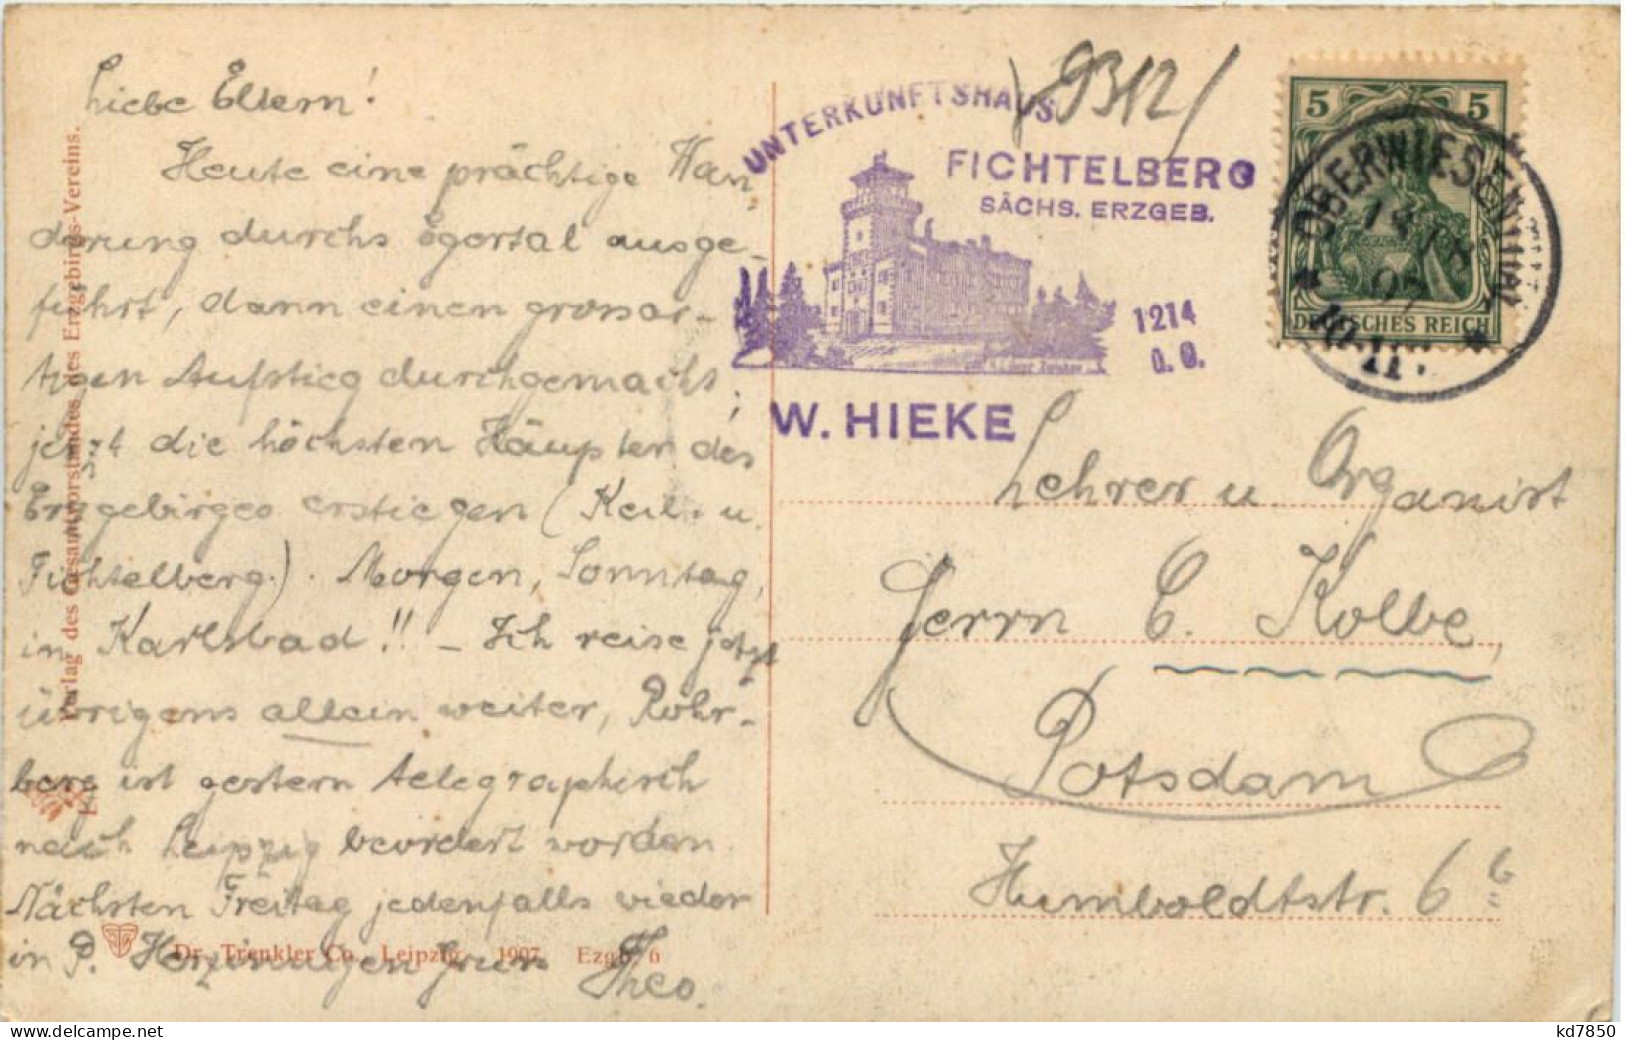 Liebe Eltern!
Heute eine prächtige Wan-
derung durchs Egertal ausge-
führt, dann einen grossar-
tigen Aufstieg durchgemacht,
jetzt die höchsten Häupter des
Erzgebirges erstiegen (Keil- u.
Fichtelberg). Morgen, Sonntag,
in Karlsbad!! – Ich reise jetzt
übrigens allein weiter, Rohr-
berg ist gestern telegraphisch
nach Leipzig beordert worden.
Nächsten Freitag jedenfalls wieder
in P. Herzinnigen Gruss Theo.
Verlag des Gesamtvorstandes des Erzgebirgs-Vereins.
Dr. Trenkler Co., Leipzig. 1907. Ezgb. 6
9312
UNTERKUNFTSHAUS
FICHTELBERG
SÄCHS. ERZGEB.
1214
W. HIEKE
5 5
DEUTSCHES REICH
OBERWIESENTHAL
10-11
Lehrer u Organist
Herrn C. Kolbe,
Potsdam
Humboldtstr. 6
kd7850